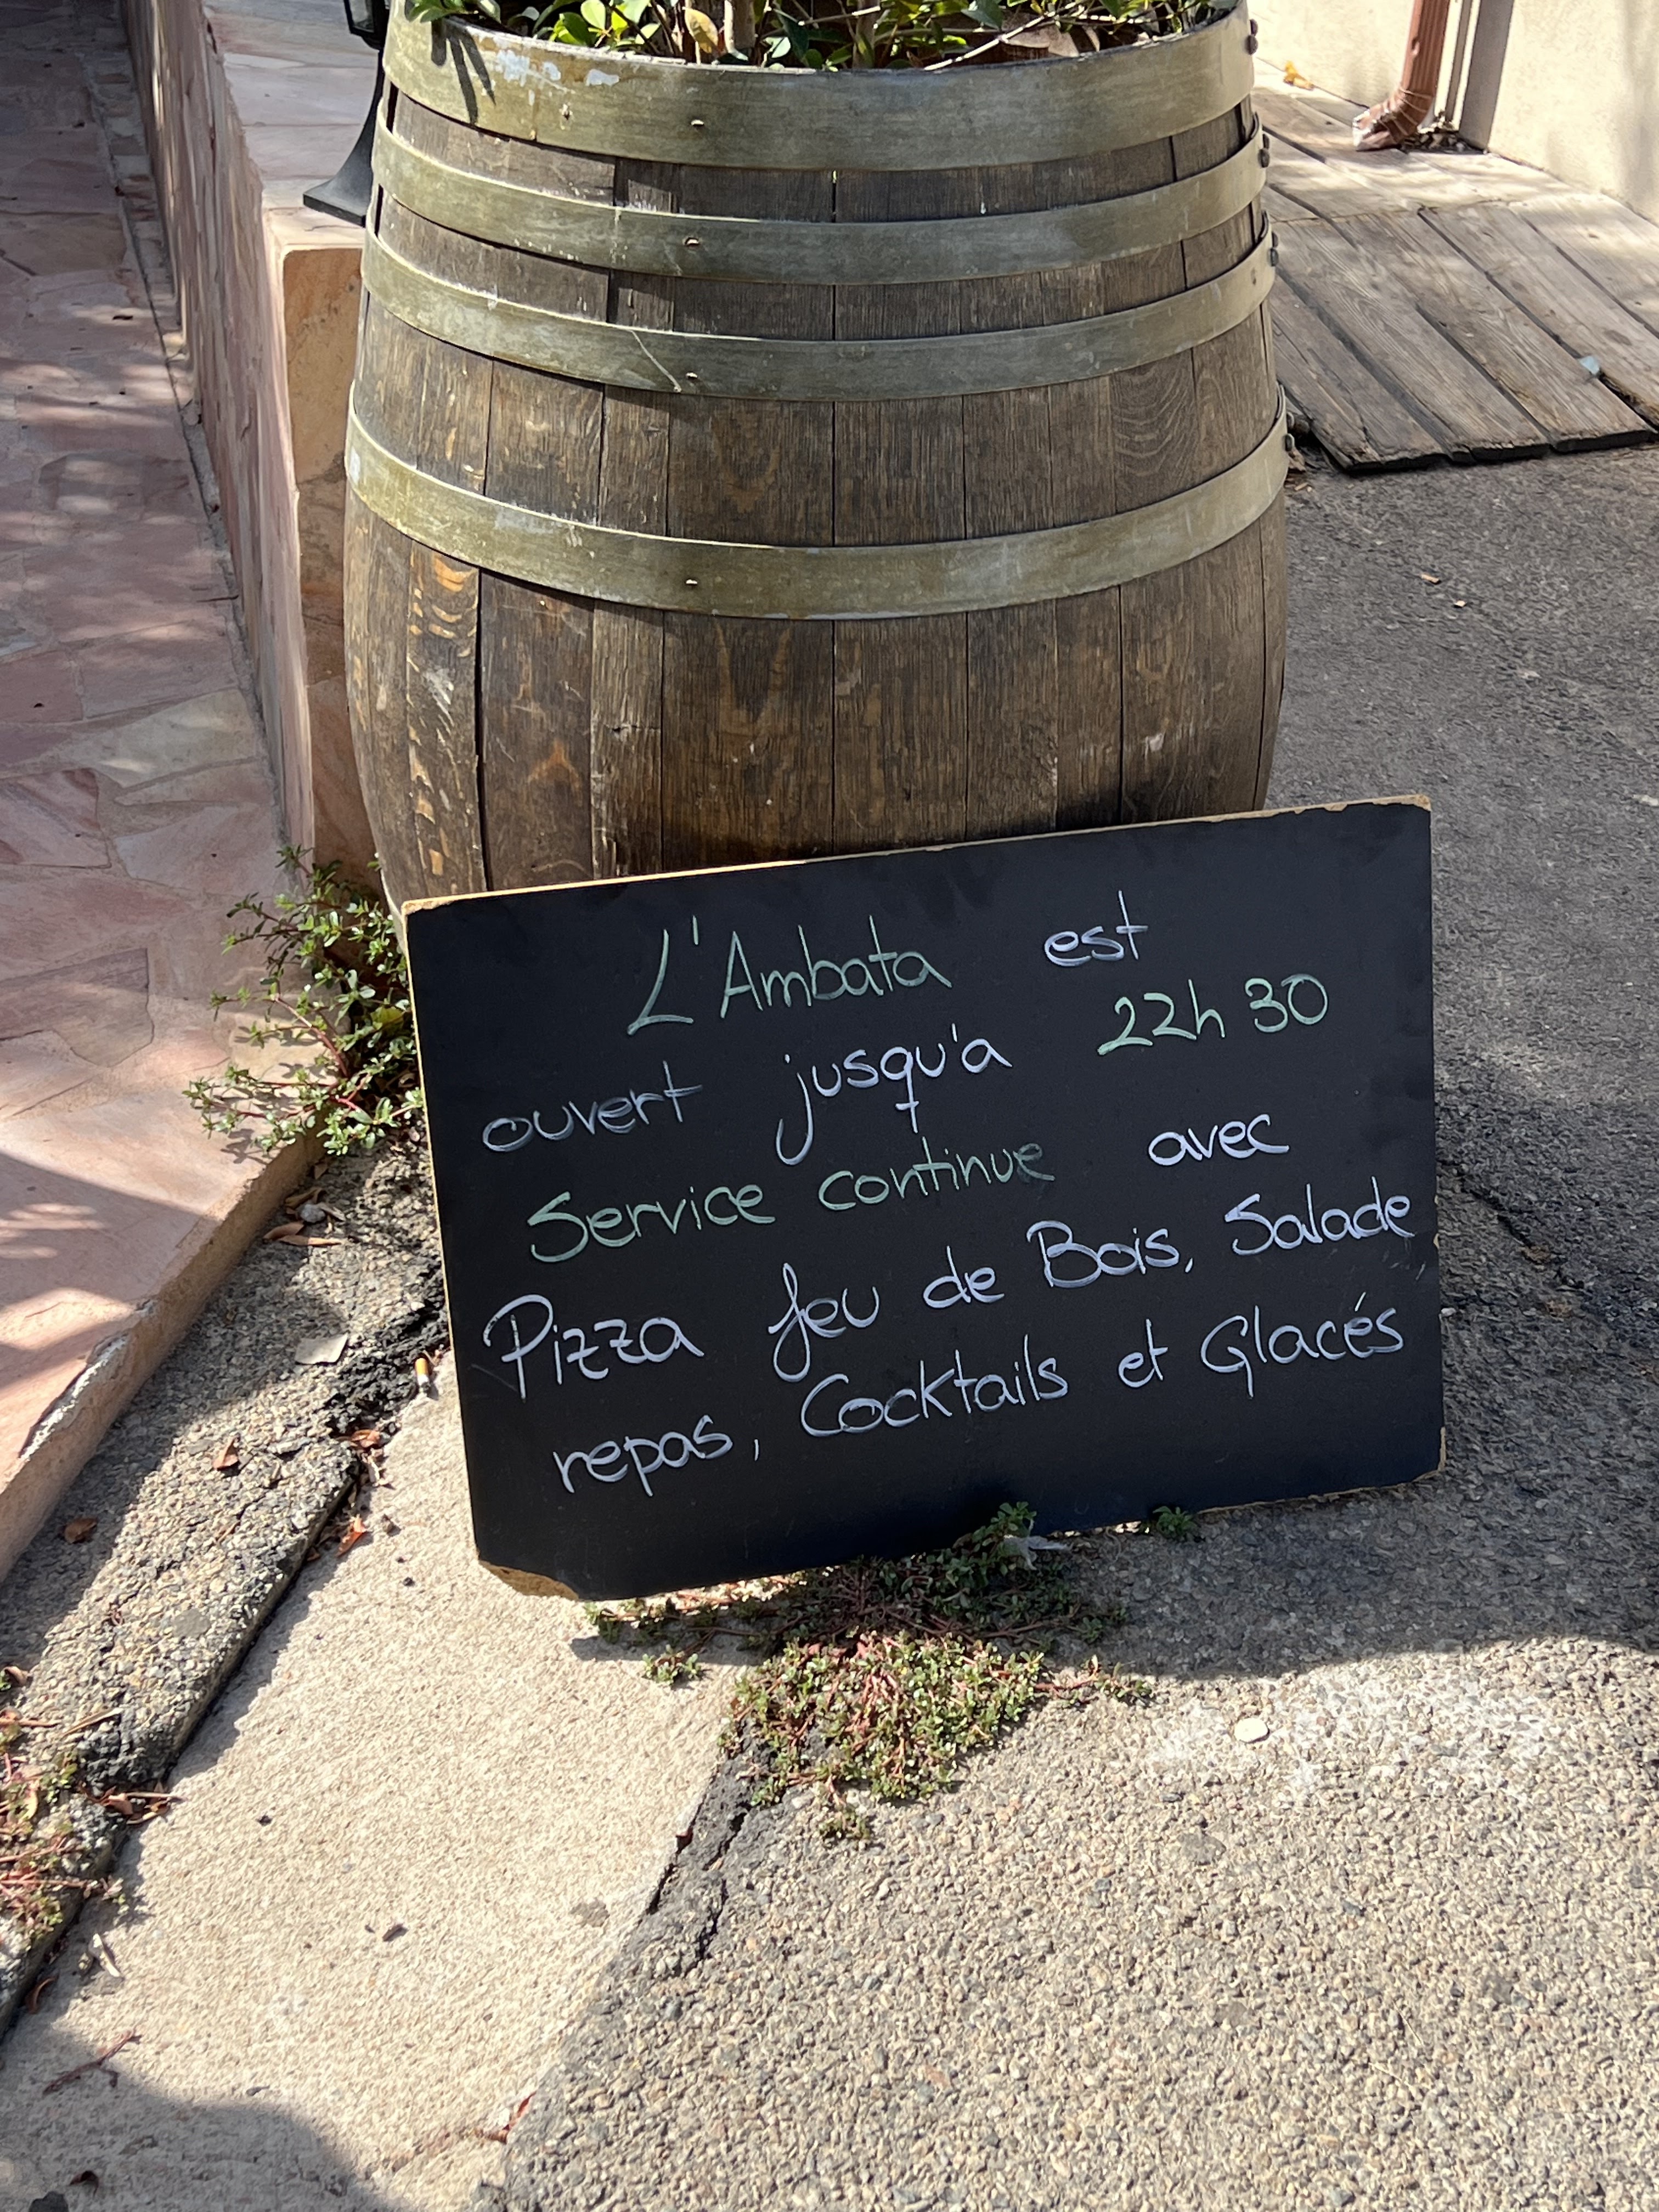 L'Ambata est
ouvert jusqu'a 22h30
Service continue avec
Pizza feu de Bois, Salade
repas, Cocktails et Glacés